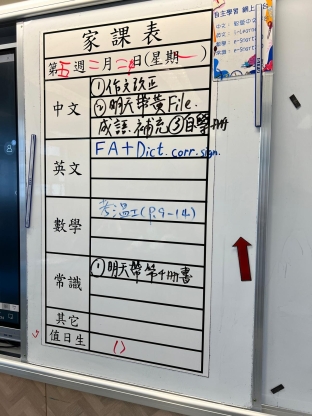 家課表
第五週二月二日(星期一)
中文
①作文改正
②明天帶黃File.
成語補充③自學冊
英文
FA+Dict. corr. sign.
數學
考温工(P.9-14)
常識
①明天帶第4冊書
其它
值日生
自主學習 網上